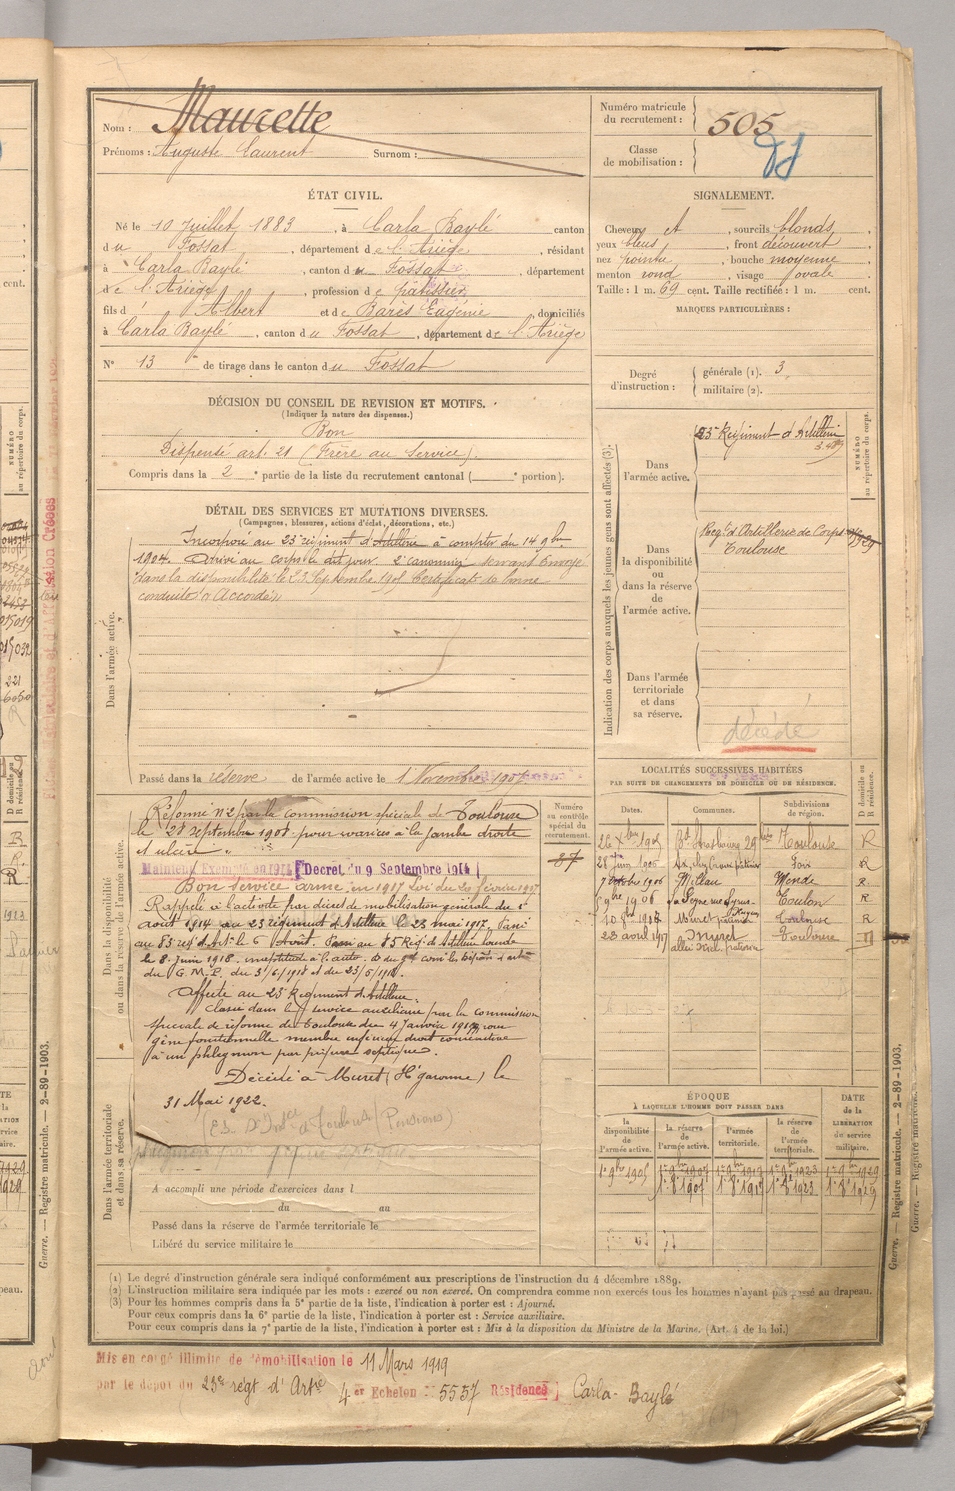 Nom : Maurette
Prénoms : Auguste Laurent Surnom :
Numéro matricule du recrutement : 505
Classe de mobilisation :
ÉTAT CIVIL.
Né le 10 Juillet 1883, à Carla Baylé canton
du Fossat, département de l'Ariège, résidant
à Carla Baylé, canton du Fossat, département
de l'Ariège, profession de pâtissier,
fils d' Albert et de Barès Eugénie, domiciliés
à Carla Baylé, canton du Fossat, département de l'Ariège
N° 13 de tirage dans le canton du Fossat
SIGNALEMENT.
Cheveux et, sourcils blonds
yeux bleus, front découvert
nez pointu, bouche moyenne
menton rond, visage ovale
Taille : 1 m. 69 cent. Taille rectifiée : 1 m. cent.
MARQUES PARTICULIÈRES :
Degré d'instruction : générale (1). 3,
militaire (2).
DÉCISION DU CONSEIL DE REVISION ET MOTIFS.
(Indiquer la nature des dispenses.)
Bon
Dispensé art. 21 (Frère au Service).
Compris dans la 2e partie de la liste du recrutement cantonal ( e portion).
DÉTAIL DES SERVICES ET MUTATIONS DIVERSES.
(Campagnes, blessures, actions d'éclat, décorations, etc.)
Dans l'armée active.
Incorporé au 23e régiment d'Artillerie à compter du 14 9bre
1904. Arrivé au corps le dit jour. 2e canonnier servant Envoyé
dans la disponibilité le 23 Septembre 1905 Certificat de bonne
conduite "Accordé"
Passé dans la réserve de l'armée active le 1 Novembre 1907
Indication des corps auxquels les jeunes gens sont affectés (3).
NUMÉRO au répertoire du corps.
Dans l'armée active.
23e Régiment d'Artillerie
Dans la disponibilité ou dans la réserve de l'armée active.
Regt d'Artillerie de Corps
Toulouse
Dans l'armée territoriale et dans sa réserve.
décédé
Dans la disponibilité ou dans la réserve de l'armée active.
Numéro au contrôle spécial du recrutement.
Réformé n° 2 par la commission spéciale de Toulouse
le 28 septembre 1908 pour varices à la jambe droite
et ulcère.
Maintenu Exempté en 1914 (Décret du 9 Septembre 1914)
Bon service armé en 1917 Loi du 20 février 1917
Rappelé à l'activité par décret de mobilisation générale du 1er
août 1914 au 23 régiment d'Artillerie le 23 mai 1917, Passé
au 53 régt d'Art. le 6 Août. Passé au 85 Régt d'Artillerie lourde
le 8 Juin 1918.
du G.M.P. du 3/6/1918 et du 23/5/1918.
Affecté au 23e Régiment d'Artillerie.
Classé dans le service auxiliaire par la commission
spéciale de réforme de Toulouse du 4 Janvier 1919, pour
gêne fonctionnelle membre inférieur droit consécutive
à un phlegmon par piqûre septique.
Décédé à Muret (Hte Garonne) le
31 Mai 1922.
LOCALITÉS SUCCESSIVES HABITÉES
PAR SUITE DE CHANGEMENTS DE DOMICILE OU DE RÉSIDENCE.
Dates. Communes. Subdivisions de région. D domicile ou R résidence.
26 Xbre 1905 Bd Strasbourg 29 Toulouse R
28 Juin 1906 Foix R
7 Octobre 1906 Millau Mende R
9bre 1906 La Seyne Toulon R
10 8bre 1908 Muret Toulouse R
23 août 1917 Muret Toulouse
ÉPOQUE
À LAQUELLE L'HOMME DOIT PASSER DANS
la disponibilité de l'armée active. la réserve de l'armée active. l'armée territoriale. la réserve de l'armée territoriale. DATE de la LIBÉRATION du service militaire.
1er 9bre 1905 1er 9bre 1907 1er 9bre 1917 1er 9bre 1923 1er 9bre 1929
1er 8bre 1907 1er 8bre 1917 1er 8bre 1923 1er 8bre 1929
Dans l'armée territoriale et dans sa réserve.
A accompli une période d'exercices dans l
du au
Passé dans la réserve de l'armée territoriale le
Libéré du service militaire le
(1) Le degré d'instruction générale sera indiqué conformément aux prescriptions de l'instruction du 4 décembre 1889.
(2) L'instruction militaire sera indiquée par les mots : exercé ou non exercé. On comprendra comme non exercés tous les hommes n'ayant pas passé au drapeau.
(3) Pour les hommes compris dans la 5e partie de la liste, l'indication à porter est : Ajourné.
Pour ceux compris dans la 6e partie de la liste, l'indication à porter est : Service auxiliaire.
Pour ceux compris dans la 7e partie de la liste, l'indication à porter est : Mis à la disposition du Ministre de la Marine. (Art. 4 de la loi.)
Guerre. — Registre matricule. — 2-89-1903.
Mis en congé illimité de démobilisation le 11 Mars 1919
par le dépôt du 23e régt d'Artie 4er Echelon N° 5557 Résidence Carla-Baylé